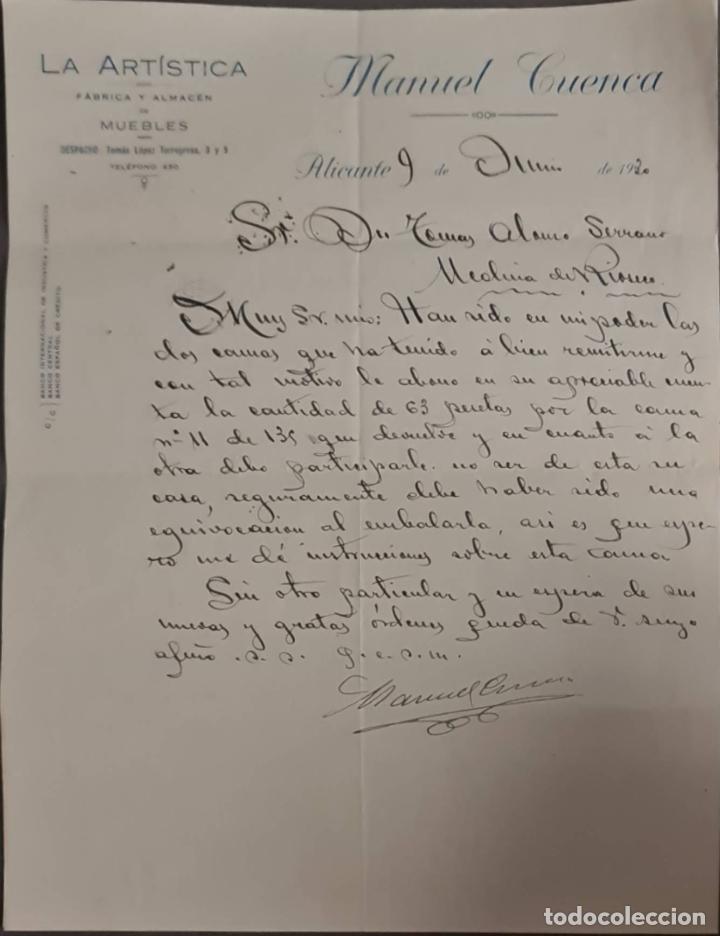 LA ARTÍSTICA
FÁBRICA Y ALMACÉN
DE
MUEBLES
DESPACHO: Tomás López Torregrosa, 3 y 5
TELÉFONO 430
Manuel Cuenca
Alicante 9 de Junio de 1920
C/C BANCO INTERNACIONAL DE INDUSTRIA Y COMERCIO
BANCO CENTRAL
BANCO ESPAÑOL DE CRÉDITO
Sr. Dn Tomas Alonso Serrano
Medina de Rioseco
Muy Sr. mio: Han sido en mi poder las
dos camas que ha tenido á bien remitirme y
con tal motivo le abono en su apreciable cuen-
ta la cantidad de 63 pesetas por la cama
nº 11 de 135 que devuelve y en cuanto á la
otra debo participarle no ser de esta su
casa, seguramente debe haber sido una
equivocacion al embalarla, asi es que espe-
ro me dé instrucciones sobre esta cama
Sin otro particular y en espera de sus
nuevas y gratas órdenes queda de V. suyo
afmo. s. s. q. e. s. m.
Manuel Cuenca
todocoleccion